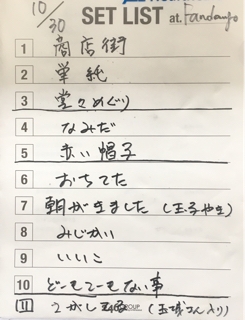 10/30
SET LIST at. Fandango
1 商店街
2 単純
3 堂々めぐり
4 なみだ
5 赤い帽子
6 おちてた
7 朝がきました (玉子やき)
8 みじかい
9 いいこ
10 どーもこーもない事
11 (玉城さん入り)